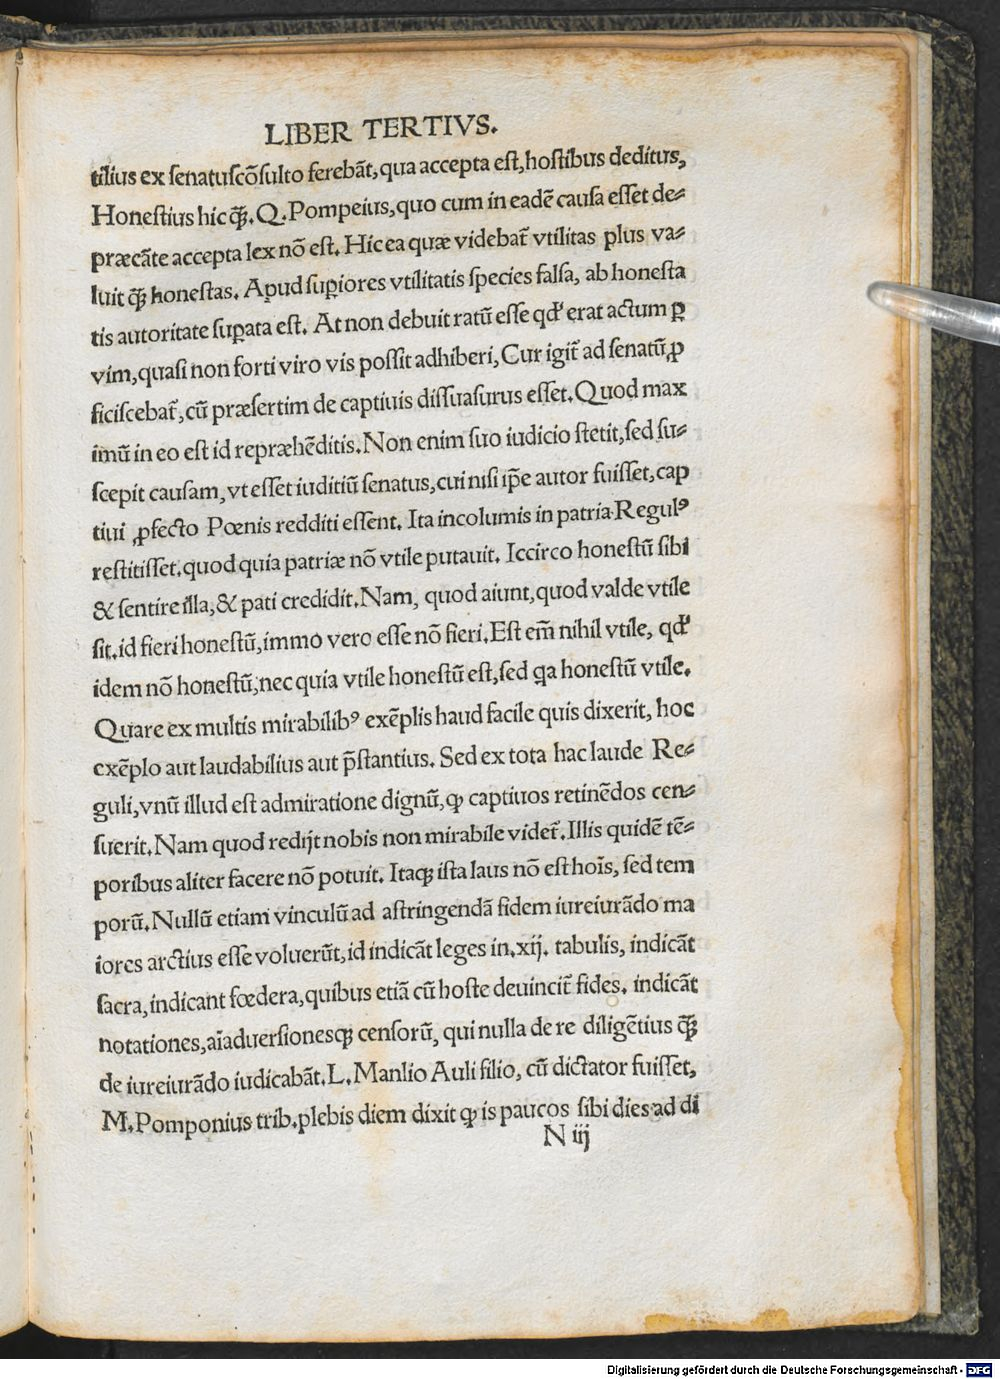 LIBER TERTIVS.
tilius ex ſenatuſcōſulto ferebāt, qua accepta eſt, hoſtibus deditus,
Honeſtius hic q̄ꝫ. Q. Pompeius, quo cum in eadē cauſa eſſet de⸗
præcāte accepta lex nō eſt. Hic ea quæ videbat̄ vtilitas plus va⸗
luit q̄ꝫ honeſtas. Apud ſuꝑiores vtilitatis ſpecies falſa, ab honeſta
tis autoritate ſuꝑata eſt. At non debuit ratū eſſe qd' erat actum ꝑ
vim, quaſi non forti viro vis poſſit adhiberi, Cur igit̄ ad ſenatū, ꝓ
ficiſcebat̄, cū præſertim de captiuis diſſuaſurus eſſet. Quod max
imū in eo eſt id repræhēditis. Non enim ſuo iudicio ſtetit, ſed ſu⸗
ſcepit cauſam, vt eſſet iuditiū ſenatus, cui niſi ip̄e autor fuiſſet, cap
tiui ꝓfecto Pœnis redditi eſſent. Ita incolumis in patria Regulꝰ
reſtitiſſet. quod quia patriæ nō vtile putauit. Iccirco honeſtū ſibi
& ſentire illa, & pati credidit. Nam, quod aiunt, quod valde vtile
ſit. id fieri honeſtū, immo vero eſſe nō fieri. Eſt em̄ nihil vtile, qd'
idem nō honeſtū, nec quia vtile honeſtū eſt, ſed ꝗa honeſtū vtile.
Quare ex multis mirabilibꝰ exēplis haud facile quis dixerit, hoc
exēplo aut laudabilius aut p̄ſtantius. Sed ex tota hac laude Re⸗
guli, vnū illud eſt admiratione dignū, ꝙ captiuos retinēdos cen⸗
ſuerit. Nam quod redijt nobis non mirabile videt̄. Illis quidē tē⸗
poribus aliter facere nō potuit. Itaqꝫ iſta laus nō eſt hoīs, ſed tem
porū. Nullū etiam vinculū ad aſtringendā fidem iureiurādo ma
iores arctius eſſe voluerūt, id indicāt leges in. xij. tabulis, indicāt
ſacra, indicant fœdera, quibus etiā cū hoſte deuincit̄ fides. indicāt
notationes, aīaduerſioneſqꝫ cenſorū, qui nulla de re diligētius q̄ꝫ
de iureiurādo iudicabāt. L. Manlio Auli filio, cū dictator fuiſſet,
M. Pomponius trib. plebis diem dixit ꝙ is paucos ſibi dies ad di
N iij
Digitalisierung gefördert durch die Deutsche Forschungsgemeinschaft - DFG